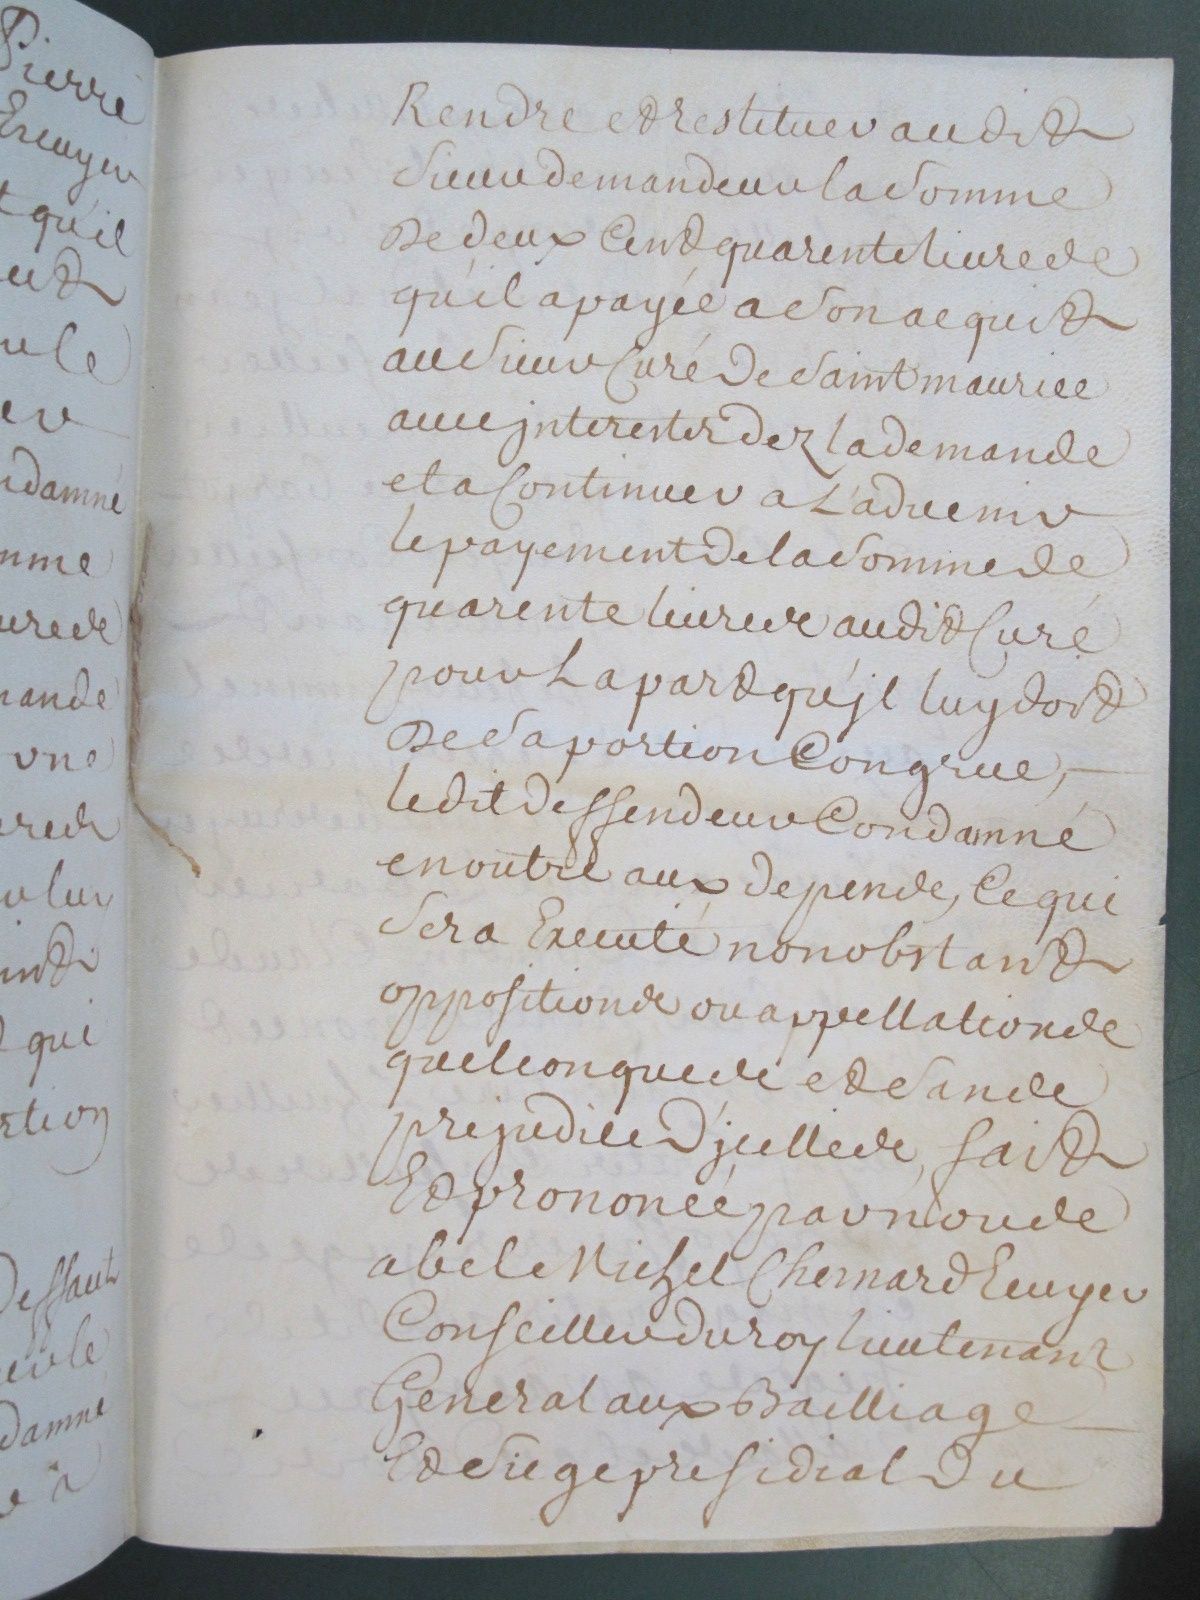 Pierre
Escuyer
t qu'il
ule
er
ndamné
mme
urede
mande
une
rede
luy
qui
rtion
Deffaut
ele
damné
e a
Rendre et restituer audit
Sieur demandeur la Somme
De deux Cent quarente livres
qu'il a payée a Son acquit
au Sieur Curé De Saint maurice
avec jnterests dez la demande
et a Continuer a L'advenir
le payement De la Somme de
quarente livres audit Curé
pour La part qu'jl luy doit
De Sa portion Congrue,
ledit deffendeur Condamné
en outre aux depens, Ce qui
Sera Executé nonobstant
oppositions ou appellations
quelconques et Sans
prejudice D'jcelles, fait
Et prononcé par nous
abel Michel Chesnard Ecuyer
Conseiller du roy lieutenant
General aux Bailliage
Et Siege presidial Du